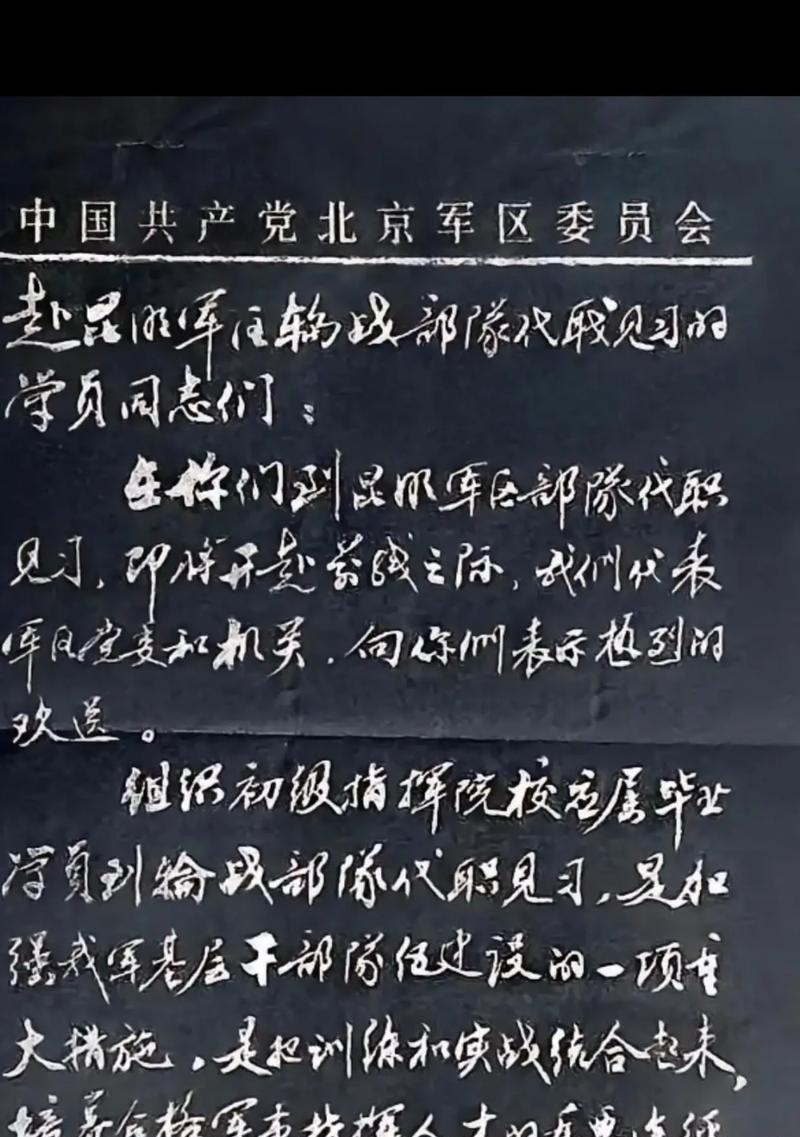 中国共产党北京军区委员会
赴昆明军区轮战部队代职见习的
学员同志们：
在你们到昆明军区部队代职
见习，即将开赴前线之际，我们代表
军区党委和机关，向你们表示热烈的
欢送。
组织初级指挥院校应届毕业
学员到轮战部队代职见习，是加
强我军基层干部队伍建设的一项重
大措施，是把训练和实战结合起来，
培养合格军事指挥人才的重要途径